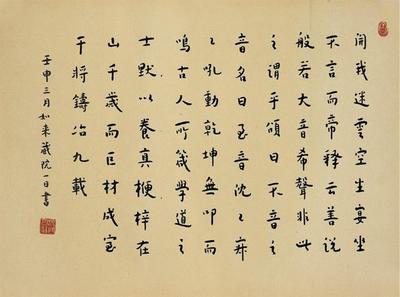 開我迷雲空生宴坐
不言而帝釋云善說
般若大音希聲非此
之謂乎頌曰不音之
音名曰至音沈々寂
々吼動乾坤無叩而
鳴古人所箴學道之
士默以養真楩梓在
山千歲而巨材成宝
干將鑄冶九載
壬申三月如來藏院一日書